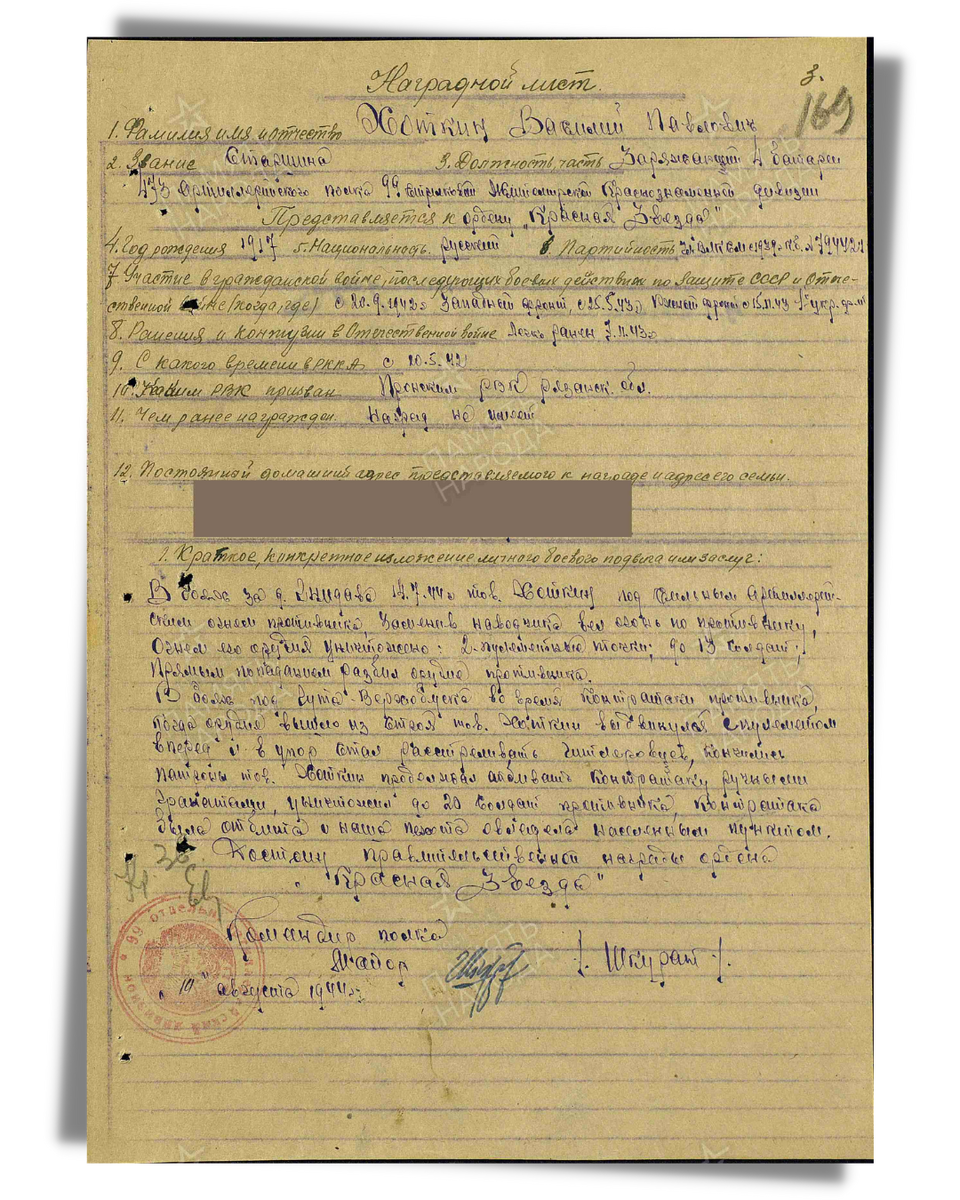 3.
169
Наградной лист.
1. Фамилия имя и отчество Хоткин Василий Павлович
2. Звание Старшина 3. Должность, часть Заряжающий 4 батареи
473 Артиллерийского полка 99 стрелковой Житомирской Краснознаменной дивизии
Представляется к ордену „Красная Звезда"
4. Год рождения 1917 5. Национальность русский 6. Партийность
7 Участие в гражданской войне, последующих боевых действиях по защите СССР и Отече-
ственной войне (когда, где) с 20.9.1942г Западный фронт, с 25.5.43г фронт с 15.11.43 1й укр. фронт
8. Ранения и контузии в Отечественной войне Легко ранен 7.11.43г
9. С какого времени в РККА с 20.5.42
10. Каким РВК призван Пронским РВК Рязанск. обл.
11. Чем ранее награжден. Наград не имеет
12. Постоянный домашний адрес представляемого к награде и адрес его семьи.
1. Краткое, конкретное изложение личного боевого подвига или заслуг:
В боях за д. 14.7.44г тов. Хоткин под сильным артиллерий-
ским огнем противника заменив наводчика вел огонь по противнику,
Огнем его орудия уничтожено: 2-пулеметные точки, до 13 солдат,
Прямым попаданием разбил орудие противника.
В боях под Гута во время контратаки противника,
когда орудия вышло из строя тов. Хоткин выдвинулся с пулеметом
вперед и в упор стал расстреливать гитлеровцев, кончились
патроны тов. Хоткин продолжал отбивать контратаку ручными
гранатами, уничтожил до 20 солдат противника, контратака
была отбита и наша пехота овладела населенным пунктом.
Достоин правительственной награды ордена
„Красная Звезда"
Командир полка
Майор /. Шкурат /.
„14" августа 1944г
ПАМЯТЬ НАРОДА